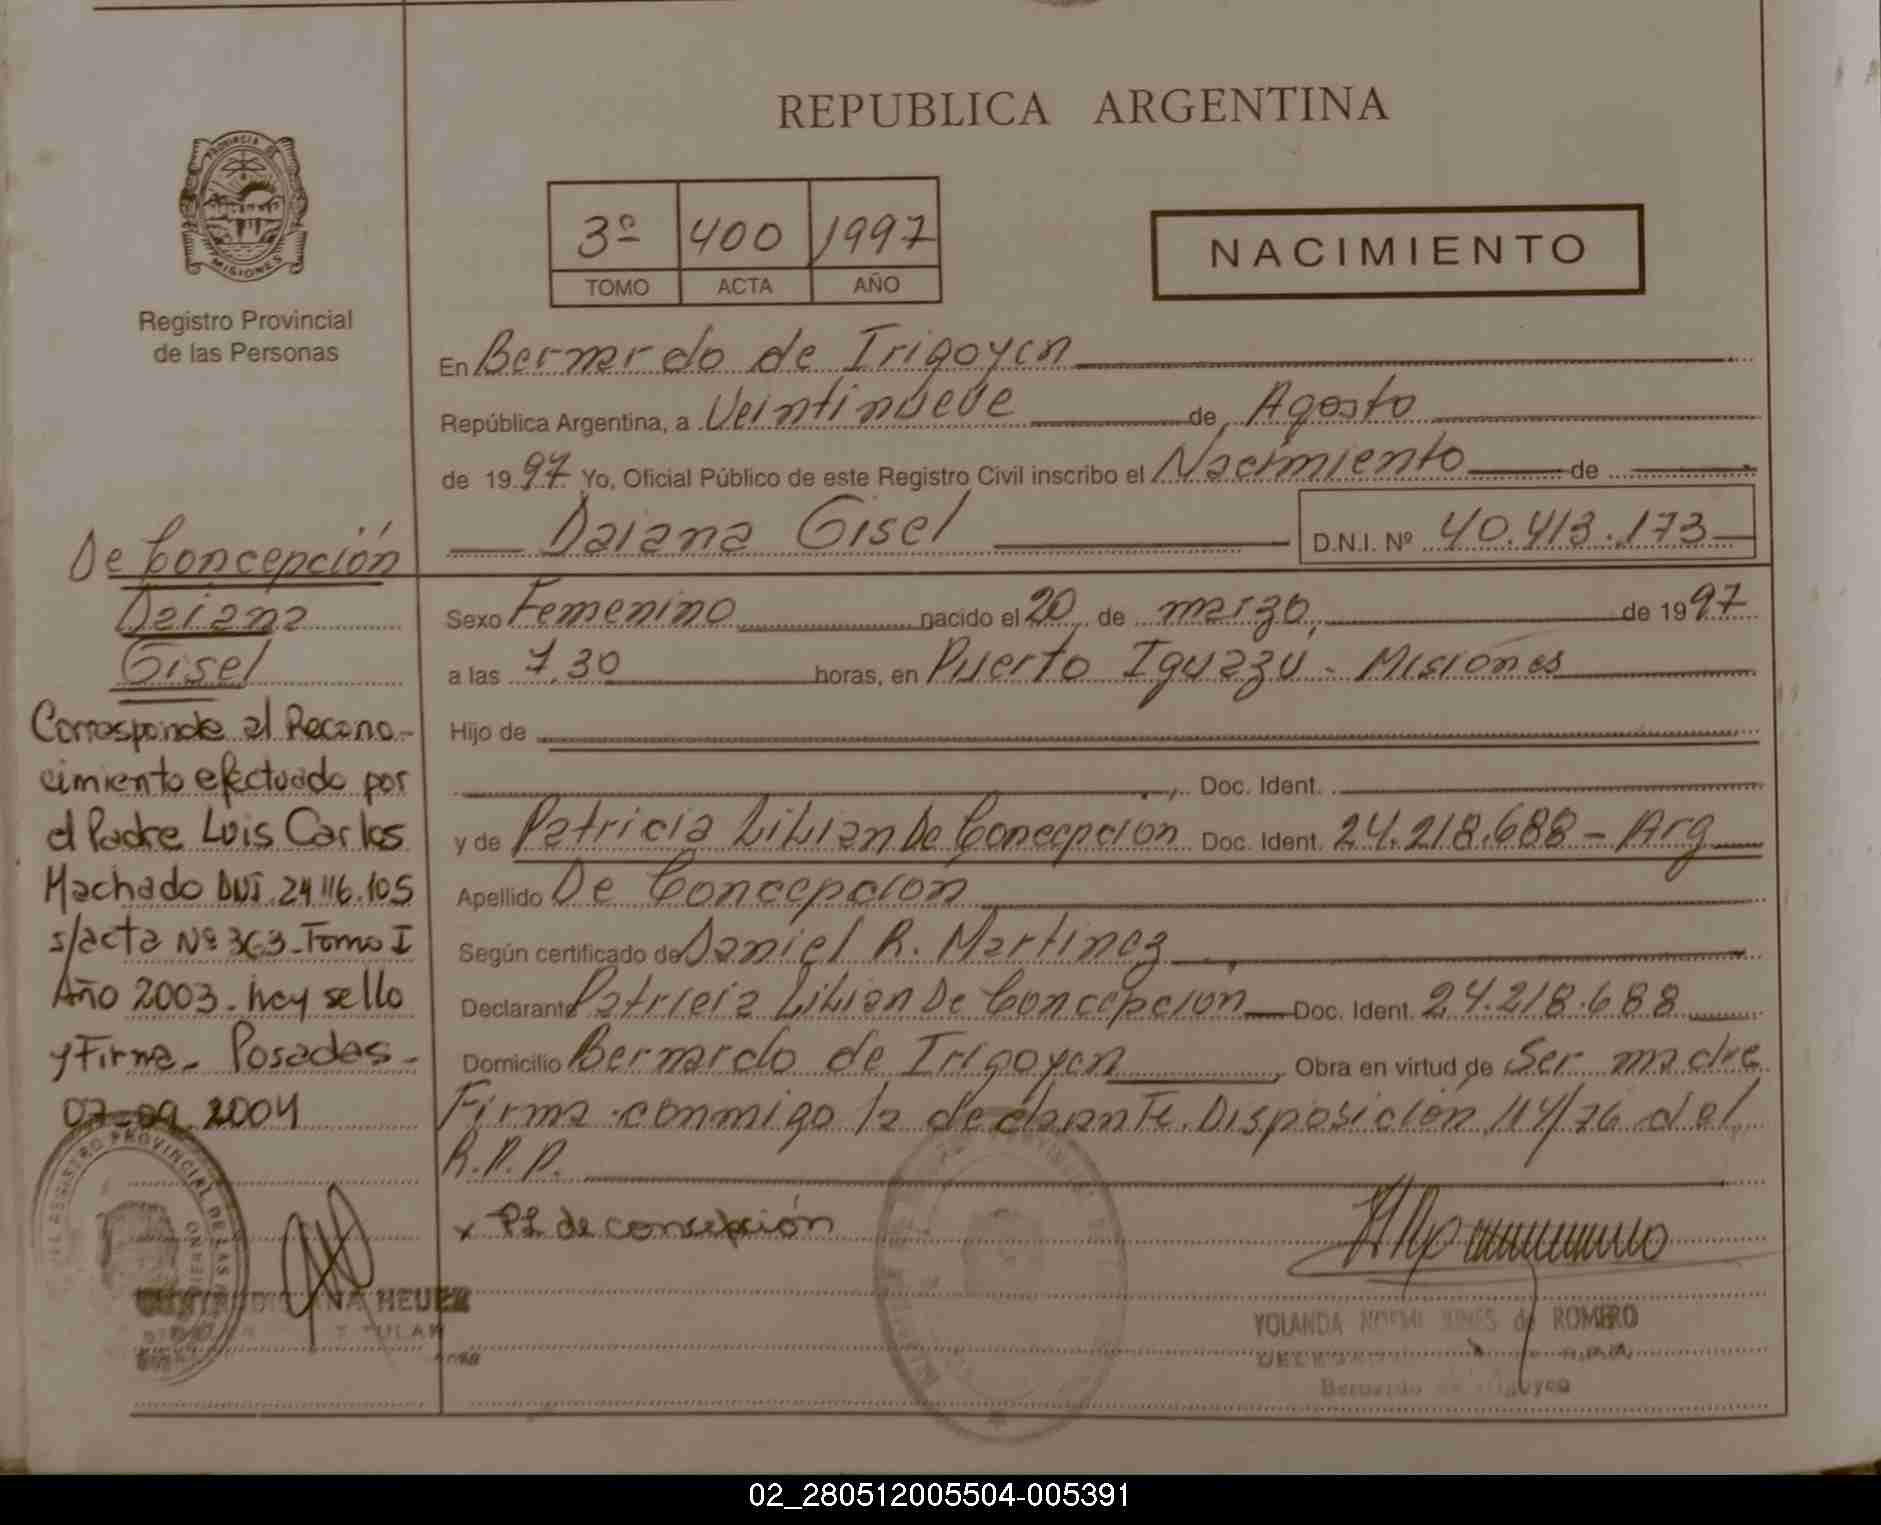 REPUBLICA ARGENTINA
PROVINCIA DE
MISIONES
Registro Provincial
de las Personas
3º 400 1997
TOMO ACTA AÑO
NACIMIENTO
En Bernardo de Irigoyen
República Argentina, a Veintinueve de Agosto
de 1997 Yo, Oficial Público de este Registro Civil inscribo el Nacimiento de
Daiana Gisel D.N.I. Nº 40.413.173
Sexo Femenino nacido el 20 de marzo, de 1997
a las 7.30 horas, en Puerto Iguazu - Misiones
Hijo de
Doc. Ident.
y de Patricia Lilian De Concepcion Doc. Ident. 24.218.688 - Arg
Apellido De Concepcion
Según certificado de Daniel R. Martinez
Declarante Patricia Lilian De Concepcion Doc. Ident. 24.218.688
Domicilio Bernardo de Irigoyen, Obra en virtud de Ser madre
Firma conmigo la declarante. Disposición 114/76 del
R.P.P.
x PL de concepción
YOLANDA NOEMI de ROMERO
Bernardo de Irigoyen
De Concepción
Daiana
Gisel
Corresponde al Recono-
cimiento efectuado por
el Padre Luis Carlos
Machado DNI. 24 116.105
s/acta Nº 363 - Tomo I
Año 2003 - hay sello
y Firma - Posadas -
07-09.2004
REGISTRO PROVINCIAL DE LAS
ANA HEUER
TITULAR
02_280512005504-005391